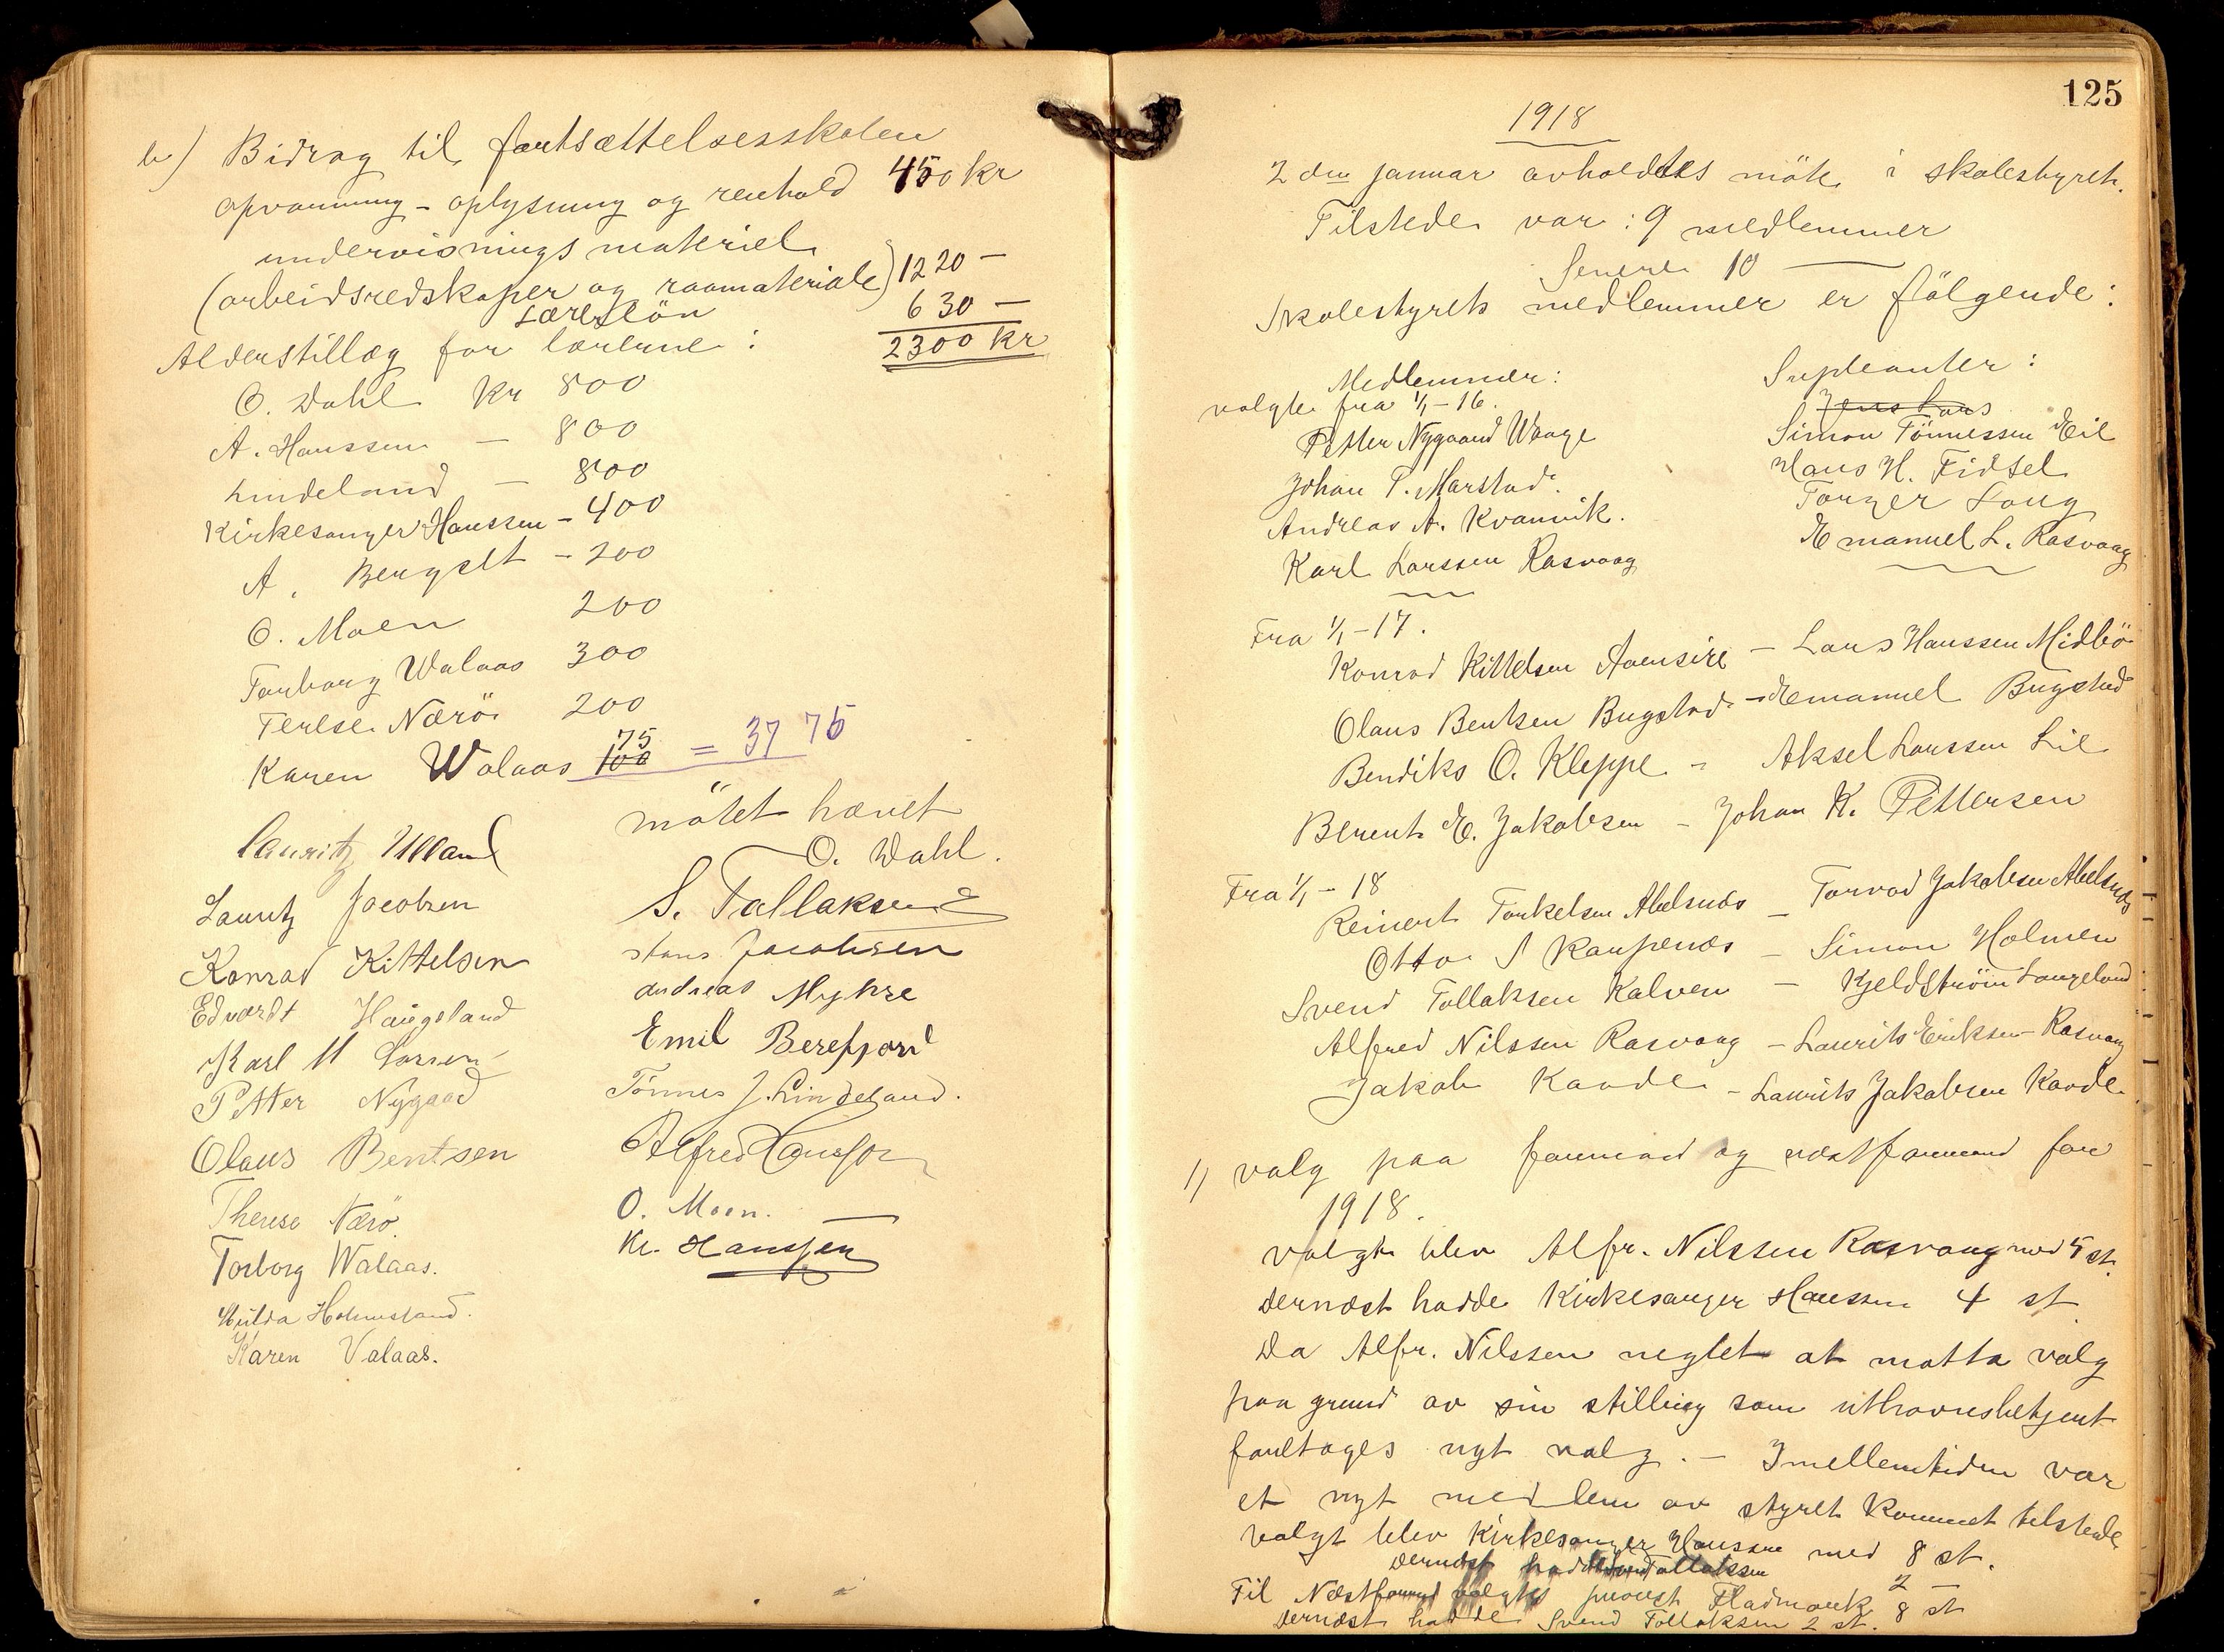 b) Bidrag til fortsættelsesskolen
opvarmning - oplysning og renhold 450 kr
undervisningsmateriel
(arbeidsredskaper og raamateriale) 1220 —
Lærerlön 630 —
2300 kr
Alderstillæg for lærerne:
O. Dahl Kr 800
A. Hanssen — 800
Lindeland — 800
Kirkesanger Hanssen - 400
A. Bergslt - 200
O. Moen 200
Torborg Walaas 300
Terese Nærö 200
Karen Walaas 100 75 = 3775
mötet hævet
O. Dahl.
Lauritz Ulland
S. Tallaksen
Lauritz Jacobsen
Hans Jacobsen
Konrad Kittelsen
Andreas Myhre
Edvardt Haugeland
Emil Berefjord
Karl M Larsen
Tönnes J. Lindeland.
Petter Nygaad
Alfred Hansson
Olaus Bentsen
O. Moen.
Therese Nærö.
Kr. Hanssen
Torborg Walaas.
Hilda Holmesland.
Karen Valaas.
125
1918
2den januar avholdtes möte i skolestyret.
Tilstede var: 9 medlemmer
Senere 10 —
Skolestyrets medlemmer er fölgende:
Medlemmer: Supleanter:
valgte fra 1/1-16. Jens Lars
Petter Nygaard Waage Simon Tönnessen Eil
Johan P. Marstad. Hans H. Fidsel
Andreas A. Kvannvik. Torger Loug
Karl Larssen Rasvaag Emanuel L. Rasvaag
Fra 1/1-17.
Konrad Kittelsen Avensire - Lars Hanssen Midbö
Olaus Bentsen Bugstad - Emanuel Bugstad
Bendiks O. Kleppe - Aksel Larssen Lie
Berent E. Jakobsen - Johan K. Pettersen
Fra 1/1-18
Reinert Torkelsen Abelsnæs - Torvad Jakobsen Abelsnæs
Otto S Kaupenæs - Simon Holmen
Svend Tollaksen Kalven - Kjeldström Langeland
Alfred Nilssen Rasvaag - Laurits Eriksen Rasvaag
Jakob Kaade - Laurits Jakobsen Kaade
1) valg paa formand og næstformand for
1918.
valgt blev Alfr. Nilssen Rasvaag med 5 st.
dernæst hadde Kirkesanger Hanssen 4 st
Da Alfr. Nilssen neglet at motta valg
paa grund av sin stilling som uthavnsbetjent
foretages nyt valg. - Imellemtiden var
et nyt medlem av styret kommet tilstede
valgt blev Kirkesanger Hanssen med 8 st.
dernæst hadde Svend Tollaksen 2 —
Til Næstformand valgtes provst Fladmark 8 st
dernæst hadde Svend Tollaksen 2 st.